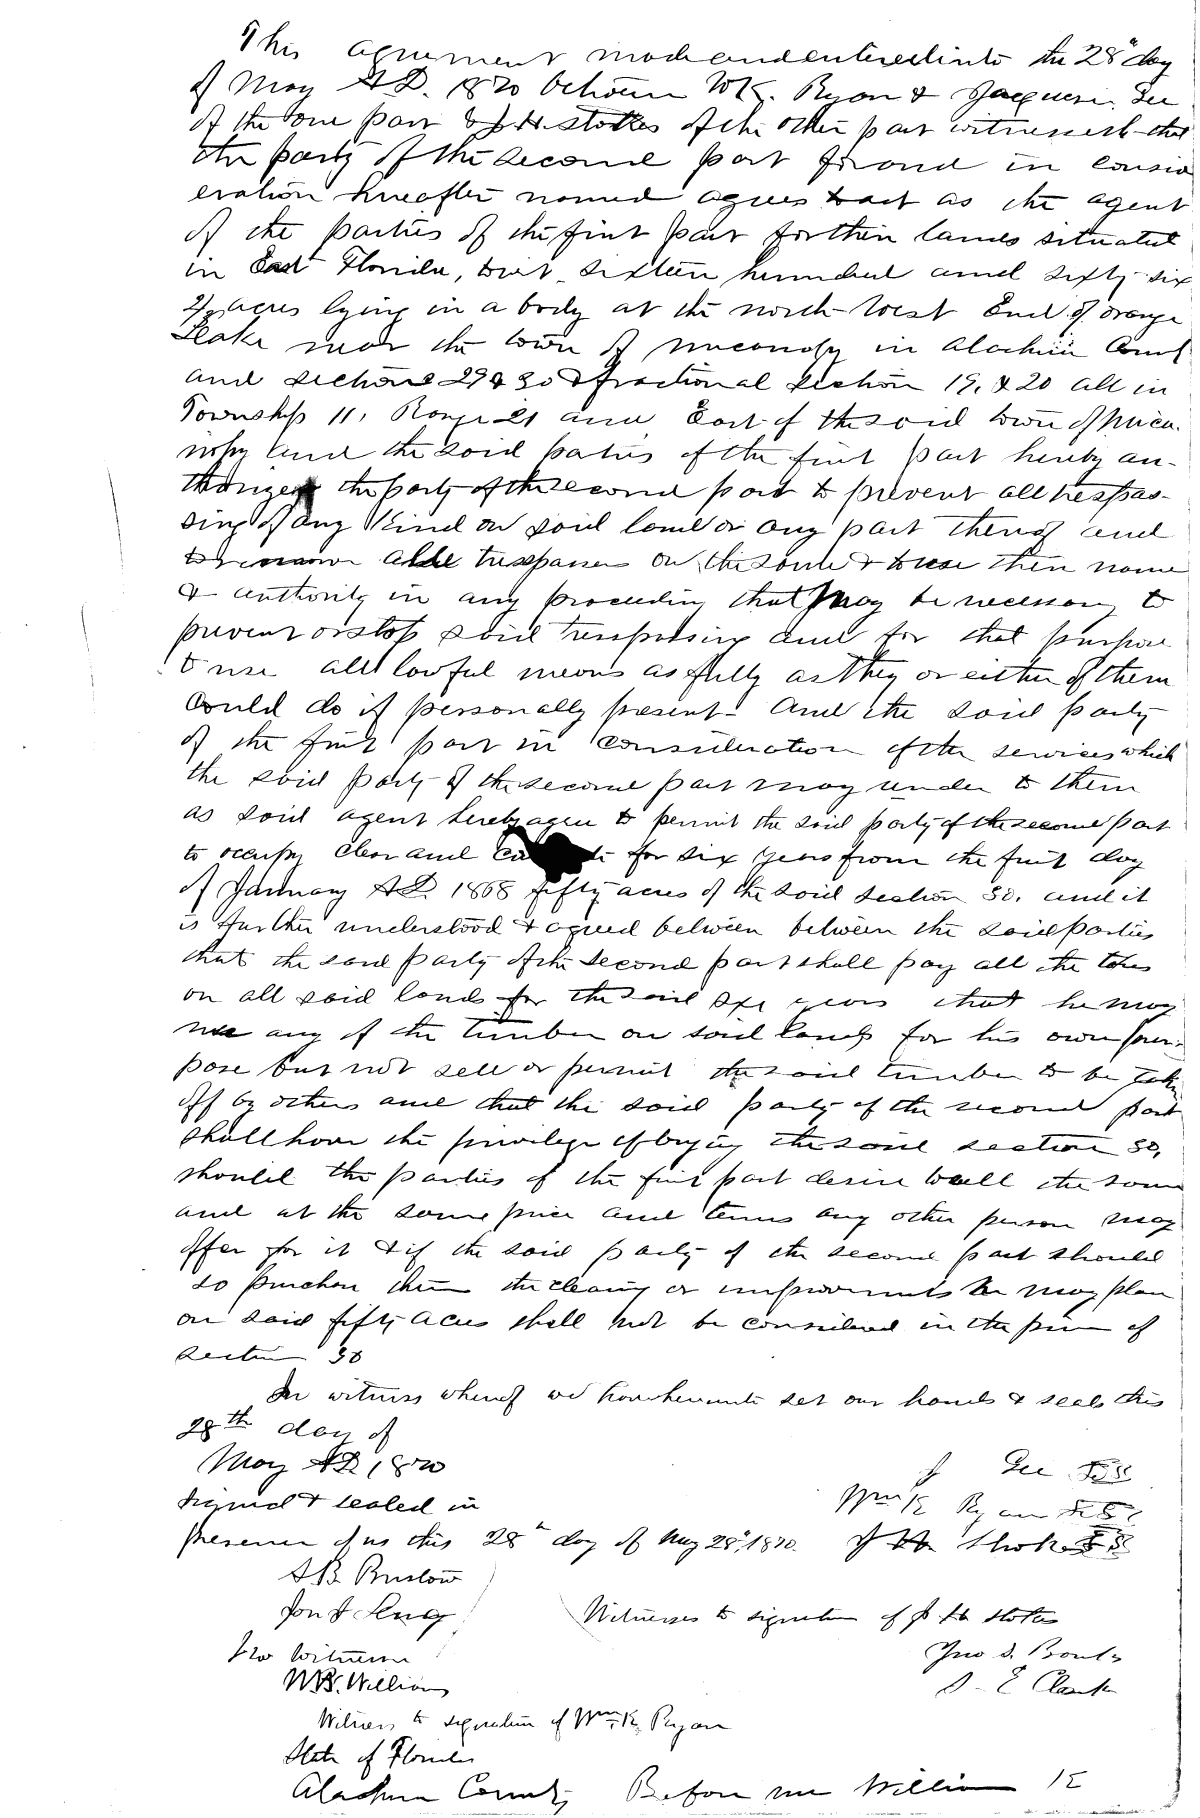 This agreement made and entered into the 28" day
of May A.D. 1870 between W K. Ryan & Jaqueri Gee
of the one part & J H Stokes of the other part witnesseth that
the party of the second part for and in consid
eration hereafter named agrees to act as the agent
of the parties of the first part for their lands situated
in East Florida, to wit Sixteen hundred and sixty six
2/3 acres lying in a body at the north-west End of orange
Leake near the town of Micanopy in Alachua County
and sections 29 & 30 & fractional section 19. & 20 all in
Township 11, Range 21 and East of the said town of Mica
nopy and the said parties of the first part hereby au-
thorize the party of the second part to prevent all trespas-
sing of any kind on said land or any part thereof and
to remove all trespassers on the same & to use their name
& authority in any proceeding that may be necessary to
prevent or stop said trespassing and for that purpose
to use all lawful means as fully as they or either of them
could do if personally present. And the said party
of the first part in consideration of the services which
the said party of the second part may render to them
as said agent hereby agree to permit the said party of the second part
to occupy clear and for six years from the first day
of January A.D. 1868 fifty acres of the said section 30. and it
is further understood & agreed between between the said parties
that the said party of the second part shall pay all the taxes
on all said lands for the said six years that he may
use any of the timber on said lands for his own pur-
pose but not sell or permit the said timber to be taken
off by others and that the said party of the second part
shall have the privilege of buying the said section 30,
should the parties of the first part desire to sell the same
and at the same price and terms any other person may
offer for it & if the said party of the second part should
so purchase then the clearing or improvements he may place
on said fifty acres shall not be considered in the price of
section 30
In witness whereof we have hereunto set our hands & seals this
28th day of
May AD 1870
J Gee
Signed & sealed in
Wm K Ryan
presence of us this 28" day of May 28", 1870. J H Stokes
Witnesses to signature of J H Stokes
Two Witnesses
W.B. Williams
Witness to signature of Wm. K. Ryan
State of Florida
Alachua County Before me William K